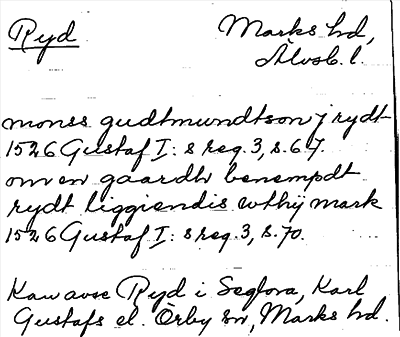 Ryd Marks hd,
Älvsb. l.
monss gudtmundtson j rydt
1526 Gustaf I: s reg. 3, s. 67.
om en gaardh benempdt
rydt liggiendis wthij mark
1526 Gustaf I: s reg. 3, s. 70.
Kan avse Ryd i Seglora, Karl
Gustafs el. Örby sn, Marks hd.